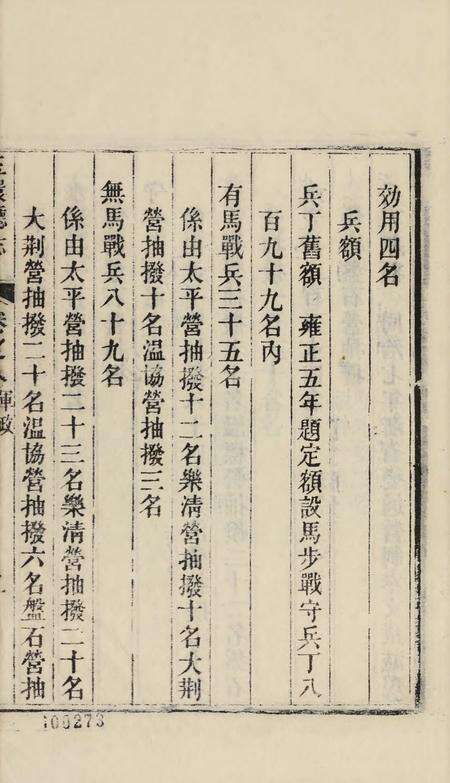 効用四名
兵額
兵丁舊額 雍正五年題定額設馬步戰守兵丁八
百九十九名內
有馬戰兵三十五名
係由太平營抽撥十二名樂清營抽撥十名大荆
營抽撥十名溫協營抽撥三名
無馬戰兵八十九名
係由太平營抽撥二十三名樂清營抽撥二十名
大荆營抽撥二十名溫協營抽撥六名盤石營抽
環廳志 卷之八 政